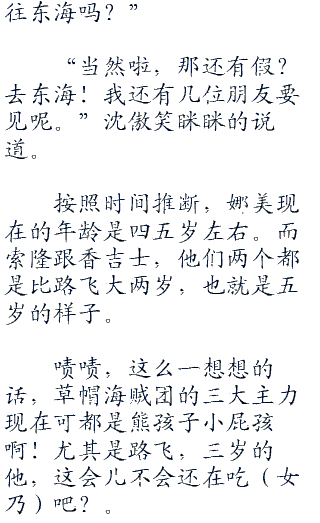 往东海吗？”
“当然啦，那还有假？
去东海！我还有几位朋友要
见呢。”沈傲笑眯眯的说
道。
按照时间推断，娜美现
在的年龄是四五岁左右。而
索隆跟香吉士，他们两个都
是比路飞大两岁，也就是五
岁的样子。
啧啧，这么一想想的
话，草帽海贼团的三大主力
现在可都是熊孩子小屁孩
啊！尤其是路飞，三岁的
他，这会儿不会还在吃（女
乃）吧？。